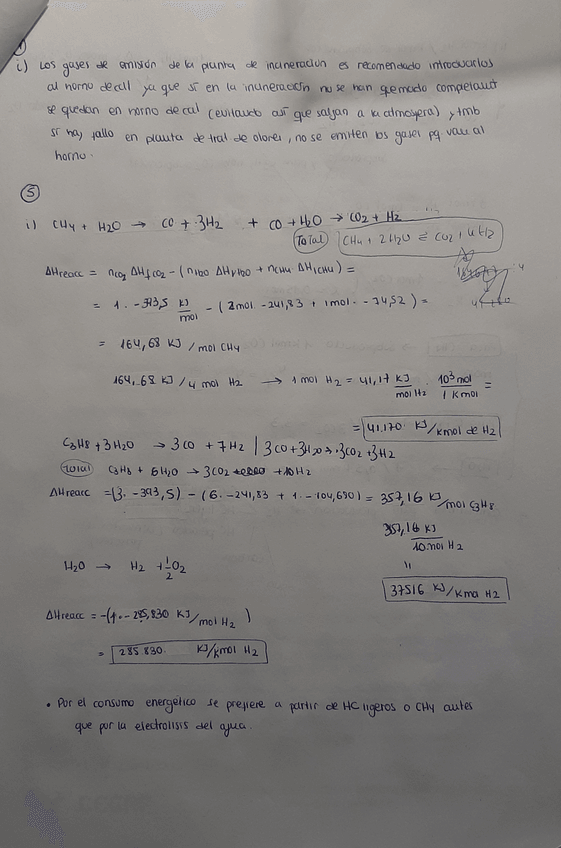 i) Los gases de emisión de la planta de incineracion es recomendado introducirlos
al horno de cal ya que si en la incineración no se han quemado completamt
se quedan en horno de cal (evitando así que salgan a la atmosfera) y tmb
si hay fallo en planta de trat de olores, no se emiten los gases pq van al
horno.
⑤
i) CH4 + H2O → CO + 3H2 + CO + H2O → CO2 + H2
Total CH4 + 2H2O ⇌ CO2 + 4H2
ΔHreacc = nCO2 ΔHfCO2 - (nH2O ΔHfH2O + nCH4 ΔHfCH4) =
= 1 · -393,5 KJ/mol - (2mol · -241,83 + 1mol · -74,52) =
= 164,68 KJ/mol CH4
164,68 KJ/4 mol H2 → 1 mol H2 = 41,17 KJ/mol H2 · 10³ mol/1 Kmol =
= 41.170 KJ/Kmol de H2
C3H8 + 3H2O → 3CO + 7H2 | 3CO + 3H2O → 3CO2 + 3H2
Total C3H8 + 6H2O → 3CO2 + 10H2
ΔHreacc = (3 · -393,5) - (6 · -241,83 + 1 · -104,680) = 357,16 KJ/mol C3H8
357,16 KJ/10 mol H2
"
37516 KJ/Kmol H2
H2O → H2 + 1/2 O2
ΔHreacc = -(1 · -285,830 KJ/mol H2)
= 285 830 KJ/Kmol H2
• Por el consumo energético se prefiere a partir de HC ligeros o CH4 antes
que por la electrolisis del agua.